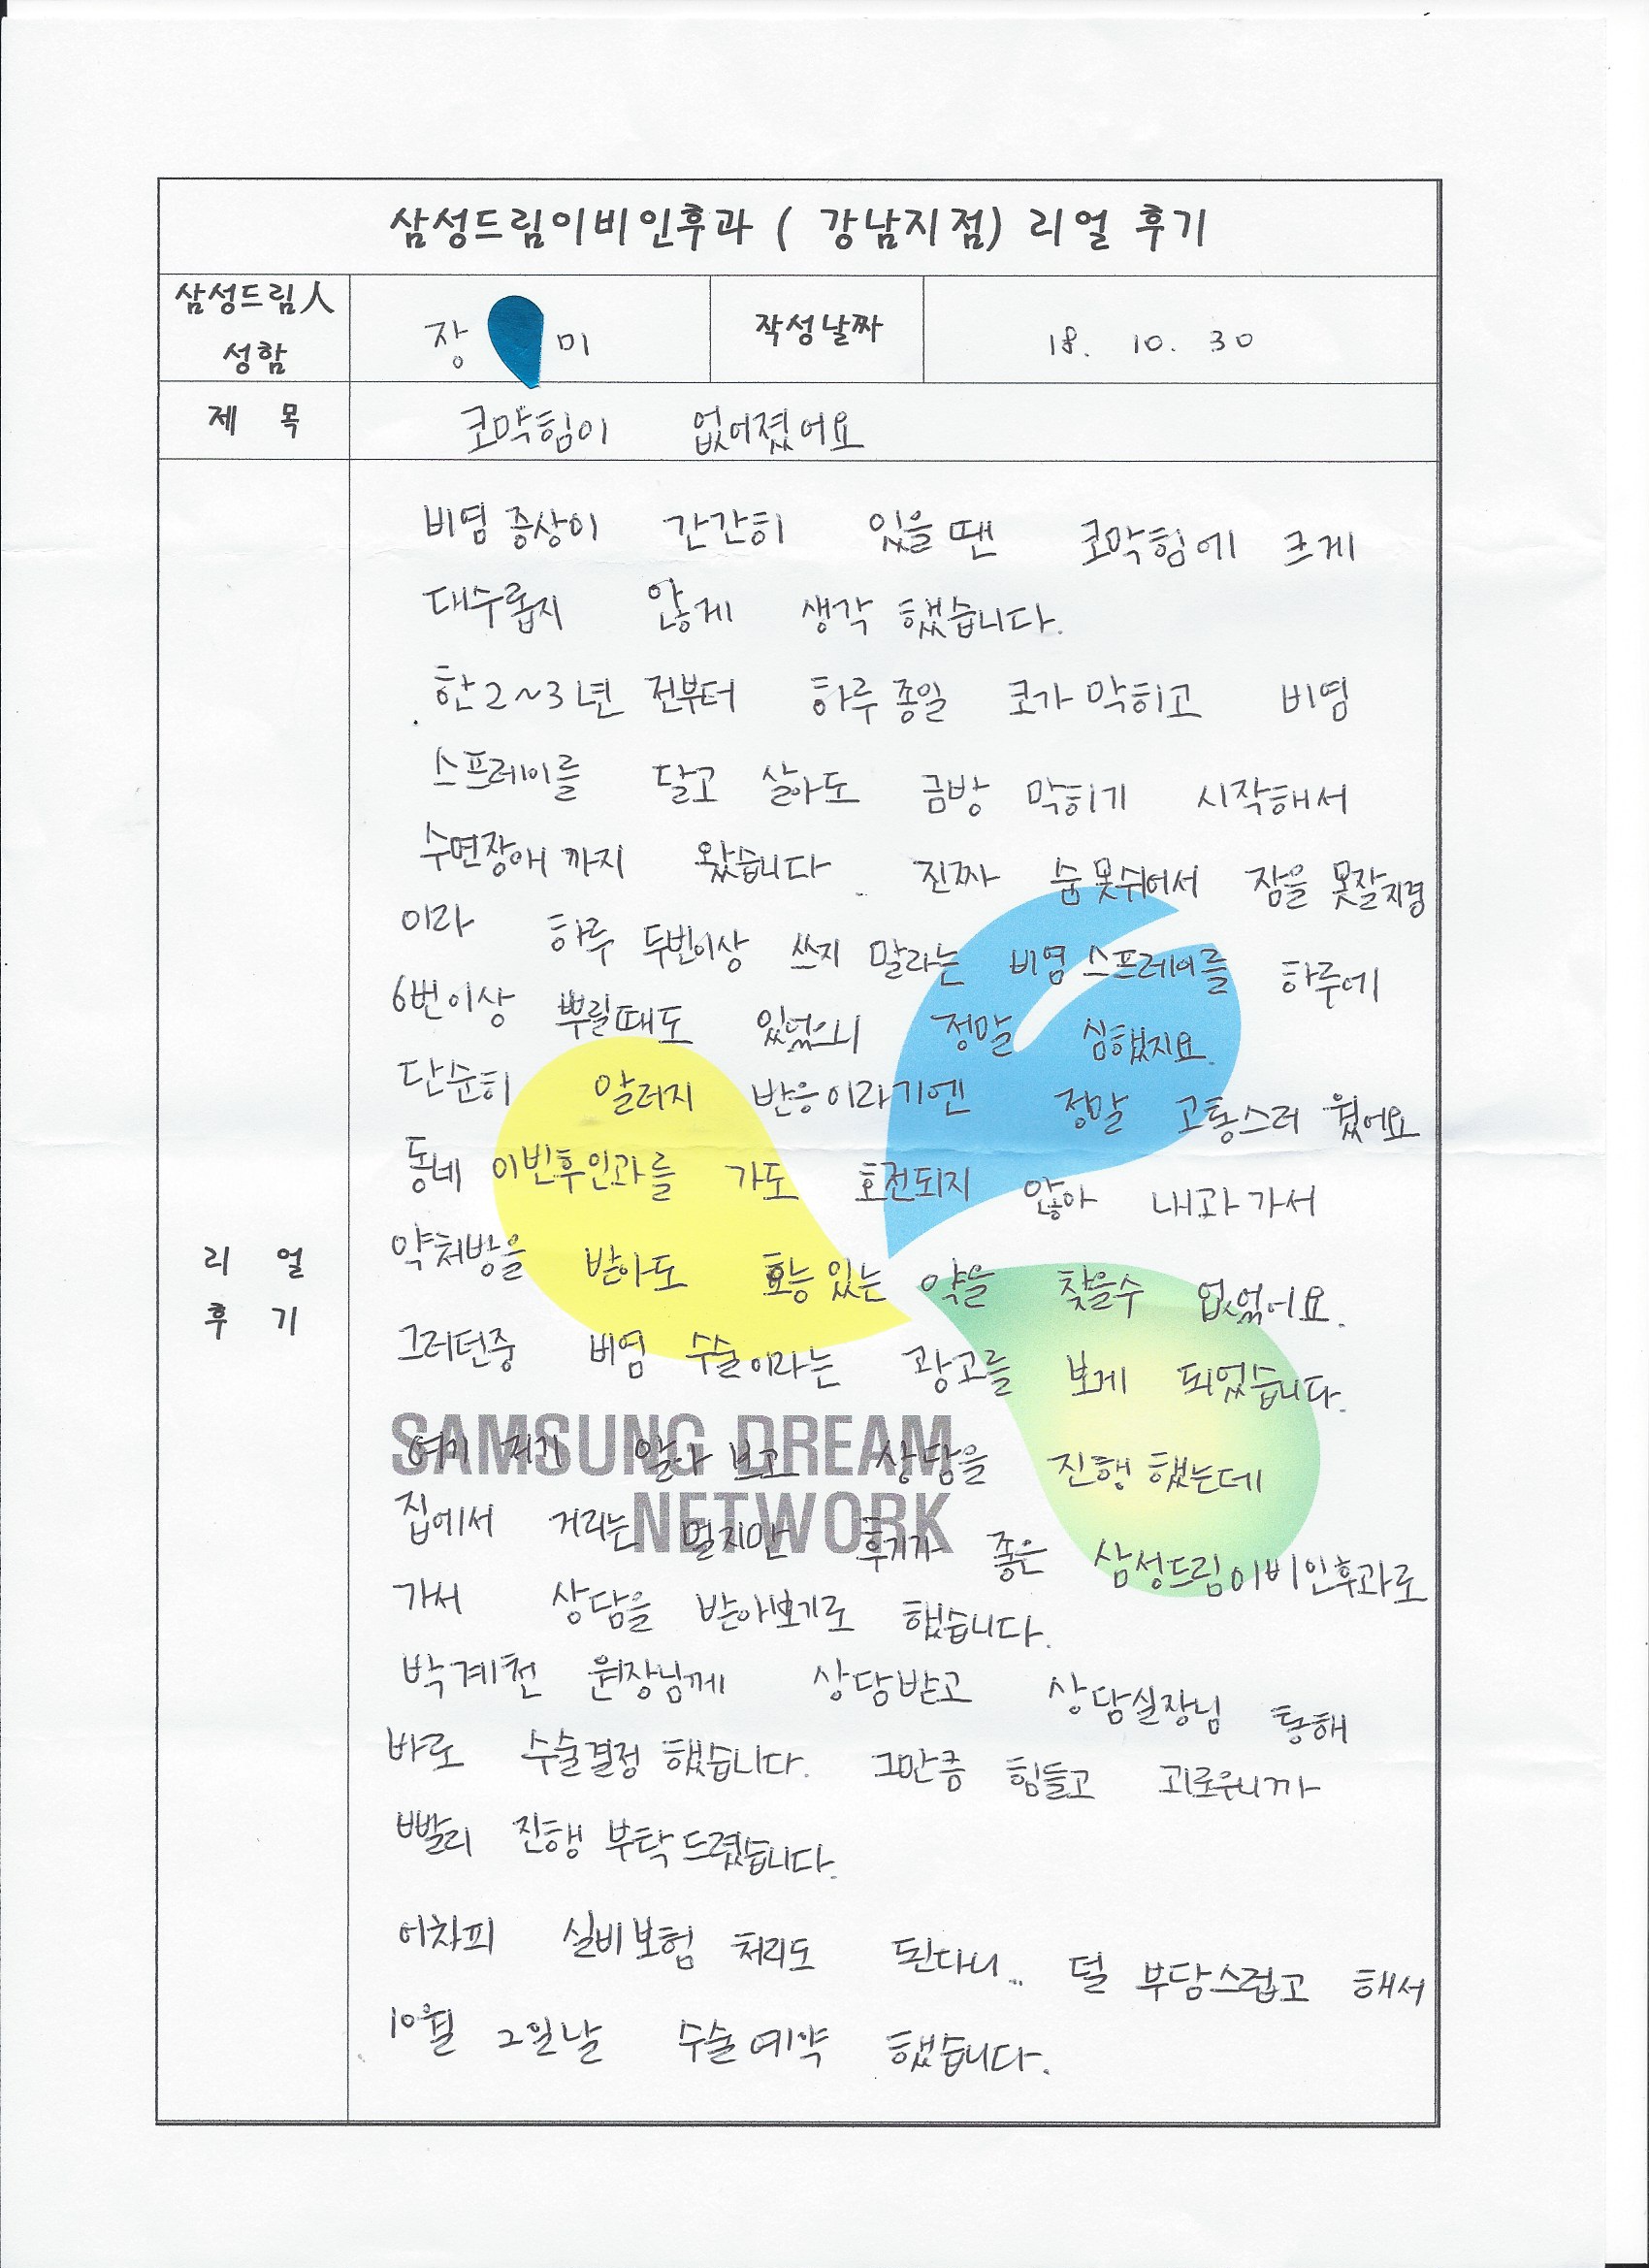 삼성드림이비인후과 ( 강남지점) 리얼 후기
삼성드림人
성함
장 미
작성날짜
18. 10. 30
제 목
코막힘이 없어졌어요
리 얼
후 기
비염 증상이 간간히 있을 땐 코막힘에 크게
대수롭지 않게 생각 했습니다.
한 2~3년 전부터 하루 종일 코가 막히고 비염
스프레이를 달고 살아도 금방 막히기 시작해서
수면장애 까지 왔습니다. 진짜 숨 못쉬어서 잠을 못잘지경
이라 하루 두번이상 쓰지 말라는 비염 스프레이를 하루에
6번이상 뿌릴때도 있었으니 정말 심했지요.
단순히 알러지 반응이라기엔 정말 고통스러 웠어요
동네 이빈후인과를 가도 호전되지 않아 내과 가서
약처방을 받아도 효능 있는 약을 찾을수 없었어요.
그러던중 비염 수술이라는 광고를 보게 되었습니다.
SAMSUNG DREAM
NETWORK
여기 저기 알아 보고 상담을 진행 했는데
집에서 거리는 멀지만 후기가 좋은 삼성드림이비인후과로
가서 상담을 받아보기로 했습니다.
박계천 원장님께 상담받고 상담실장님 통해
바로 수술결정 했습니다. 그만큼 힘들고 괴로우니까
빨리 진행 부탁 드렸습니다.
어차피 실비보험 처리도 된다니.. 덜 부담스럽고 해서
10월 2일날 수술예약 했습니다.